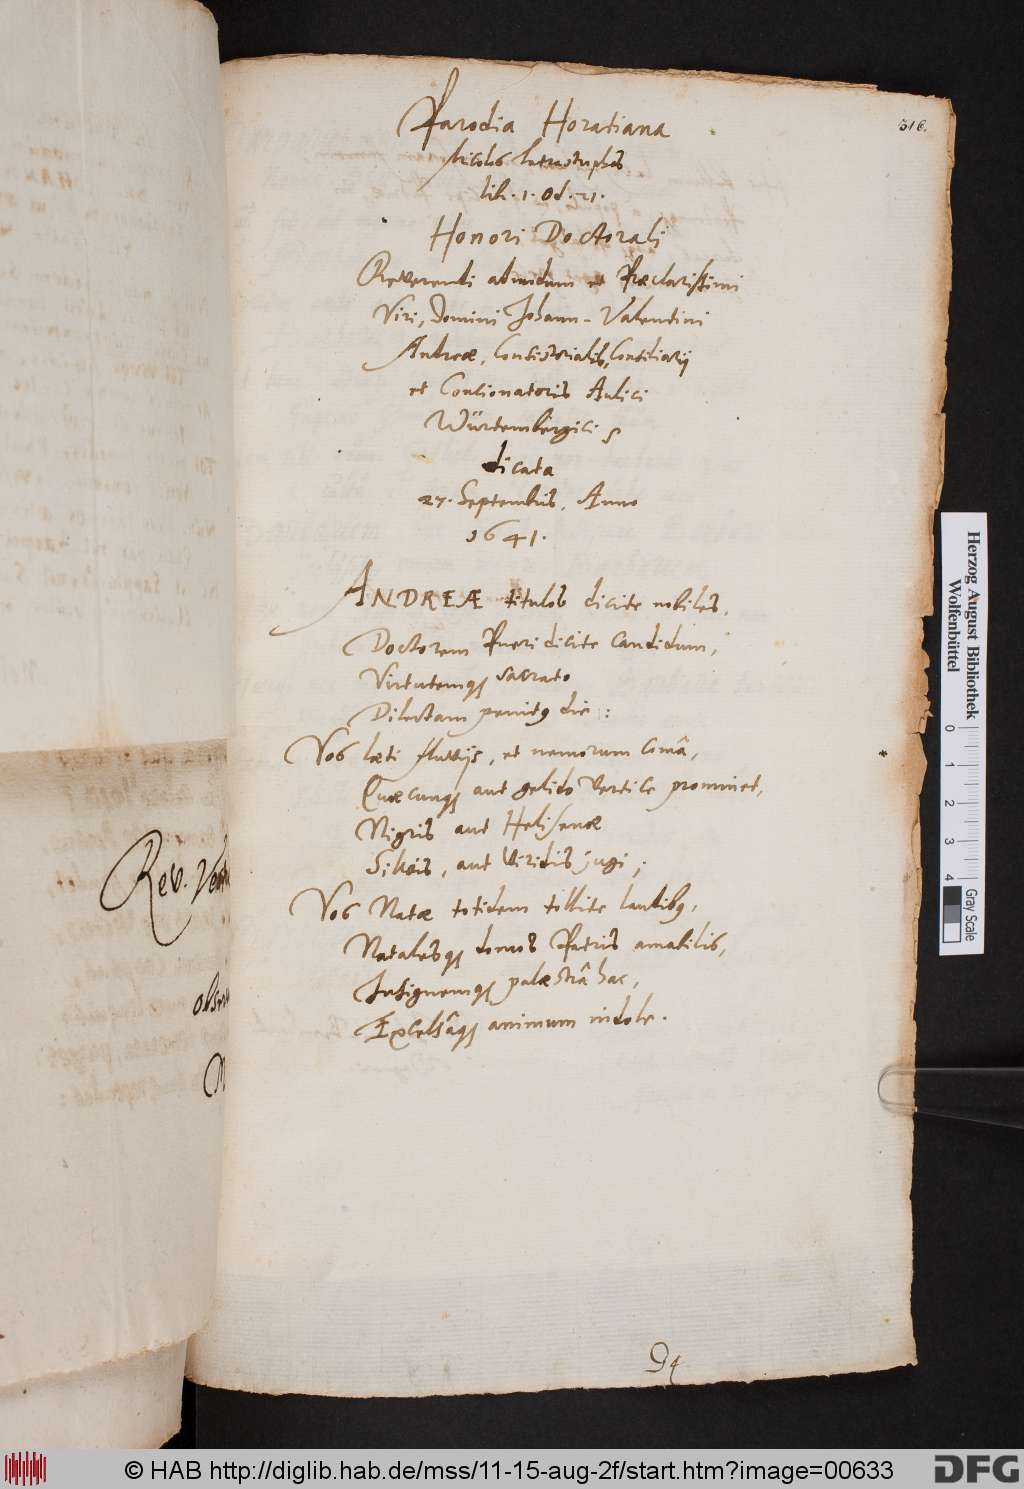 316.
Parodia Horatiana
tricolos tetrastrophos
lib. 1. Od. 21.
Honori Doctorali
Reverendi admodum et Præclarissimi
Viri, Domini Johann-Valentini
Andreæ, Consistorialis, Consiliarij
et Concionatoris Aulici
Würtembergici
dicata
27. Septembris, Anno
1641.
ANDREÆ titulos dicite nobiles,
Doctorem Pueri dicite candidum,
Virtutemqꝫ sacrato
Dilectam penitꝰ die:
Vos læti fluvijs, et nemorum comâ,
Quæcunqꝫ aut gelido vertice prominet,
Nigris aut Helisenæ
Silvis, aut viridis jugi;
Vos Natæ totidem tollite laudibꝰ,
Natalesqꝫ domos Patris amabilis,
Insignemqꝫ palæstrâ hac,
Excelsâqꝫ animum indole.
Rev.
Herzog August Bibliothek
Wolfenbüttel
0 1 2 3 4
Gray Scale
© HAB http://diglib.hab.de/mss/11-15-aug-2f/start.htm?image=00633
DFG